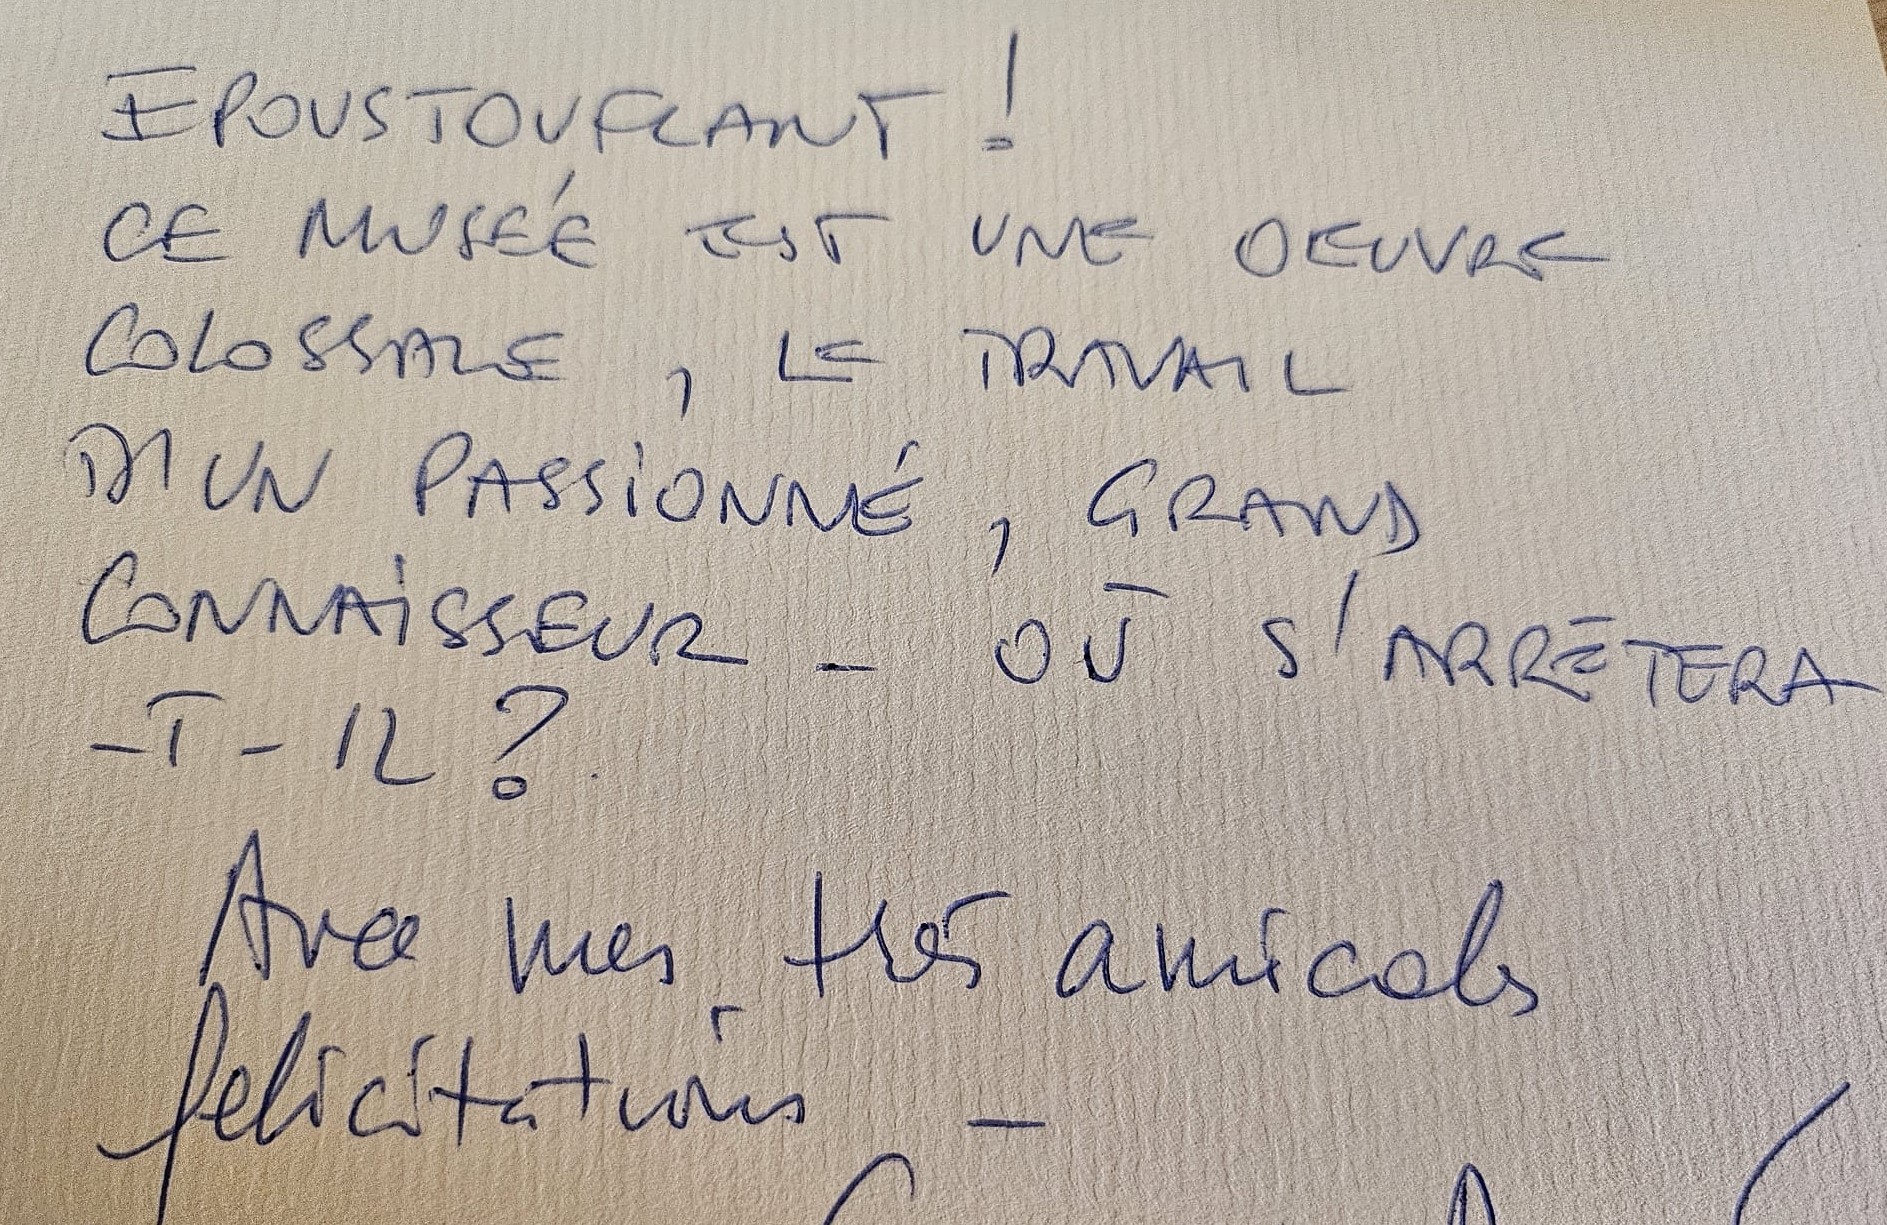 EPOUSTOUFLANT !
CE MUSÉE EST UNE OEUVRE
COLOSSALE, LE TRAVAIL
D'UN PASSIONNÉ, GRAND
CONNAISSEUR _ OÙ S'ARRÊTERA
-T-IL ?
Avec mes très amicales
félicitations _